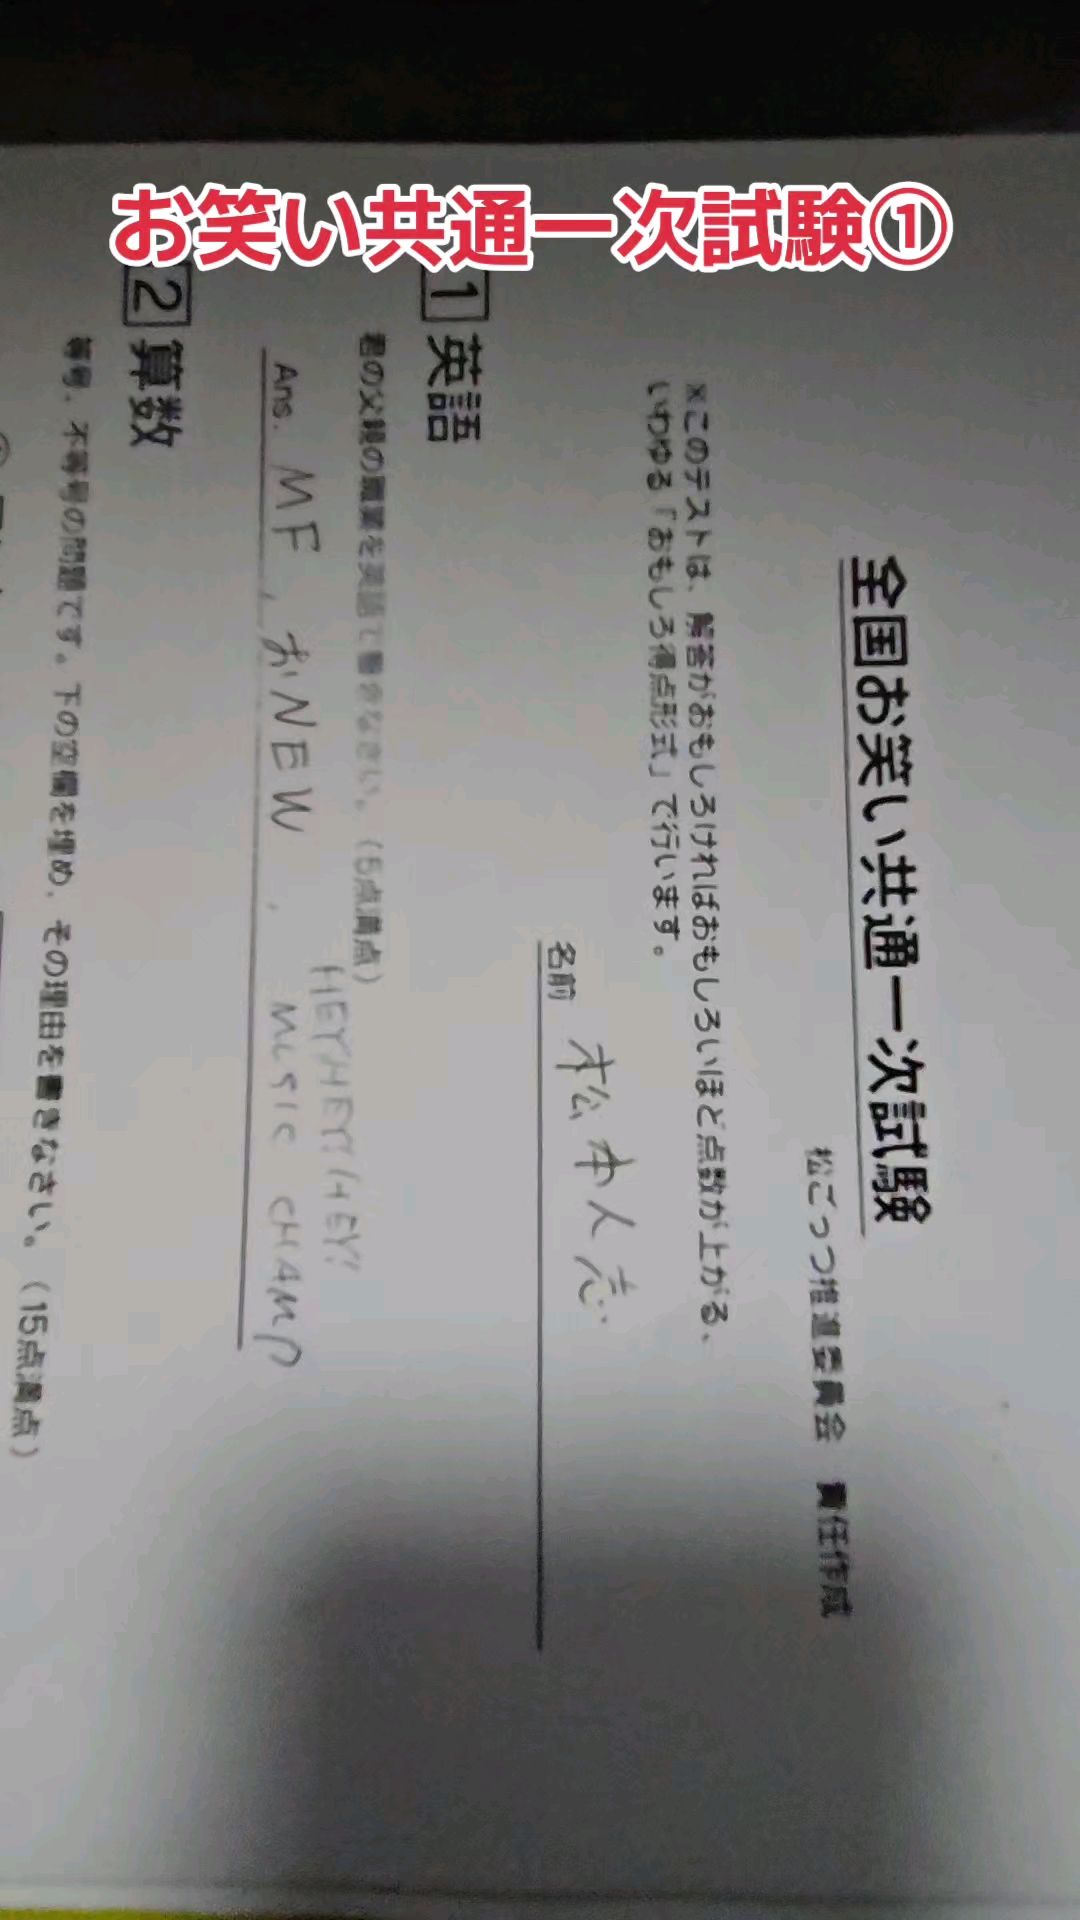 お笑い共通一次試験①
全国お笑い共通一次試験
松ごっつ推進委員会 責任作成
※このテストは、解答がおもしろければおもしろいほど点数が上がる、
いわゆる「おもしろ得点形式」で行います。
名前 松本人志
1 英語
君の父親の職業を英語で書きなさい。(5点満点)
HEY!HEY!HEY!
Ans. MF, おNEW, MUSIC CHAMP
2 算数
等号、不等号の問題です。下の空欄を埋め、その理由を書きなさい。(15点満点)